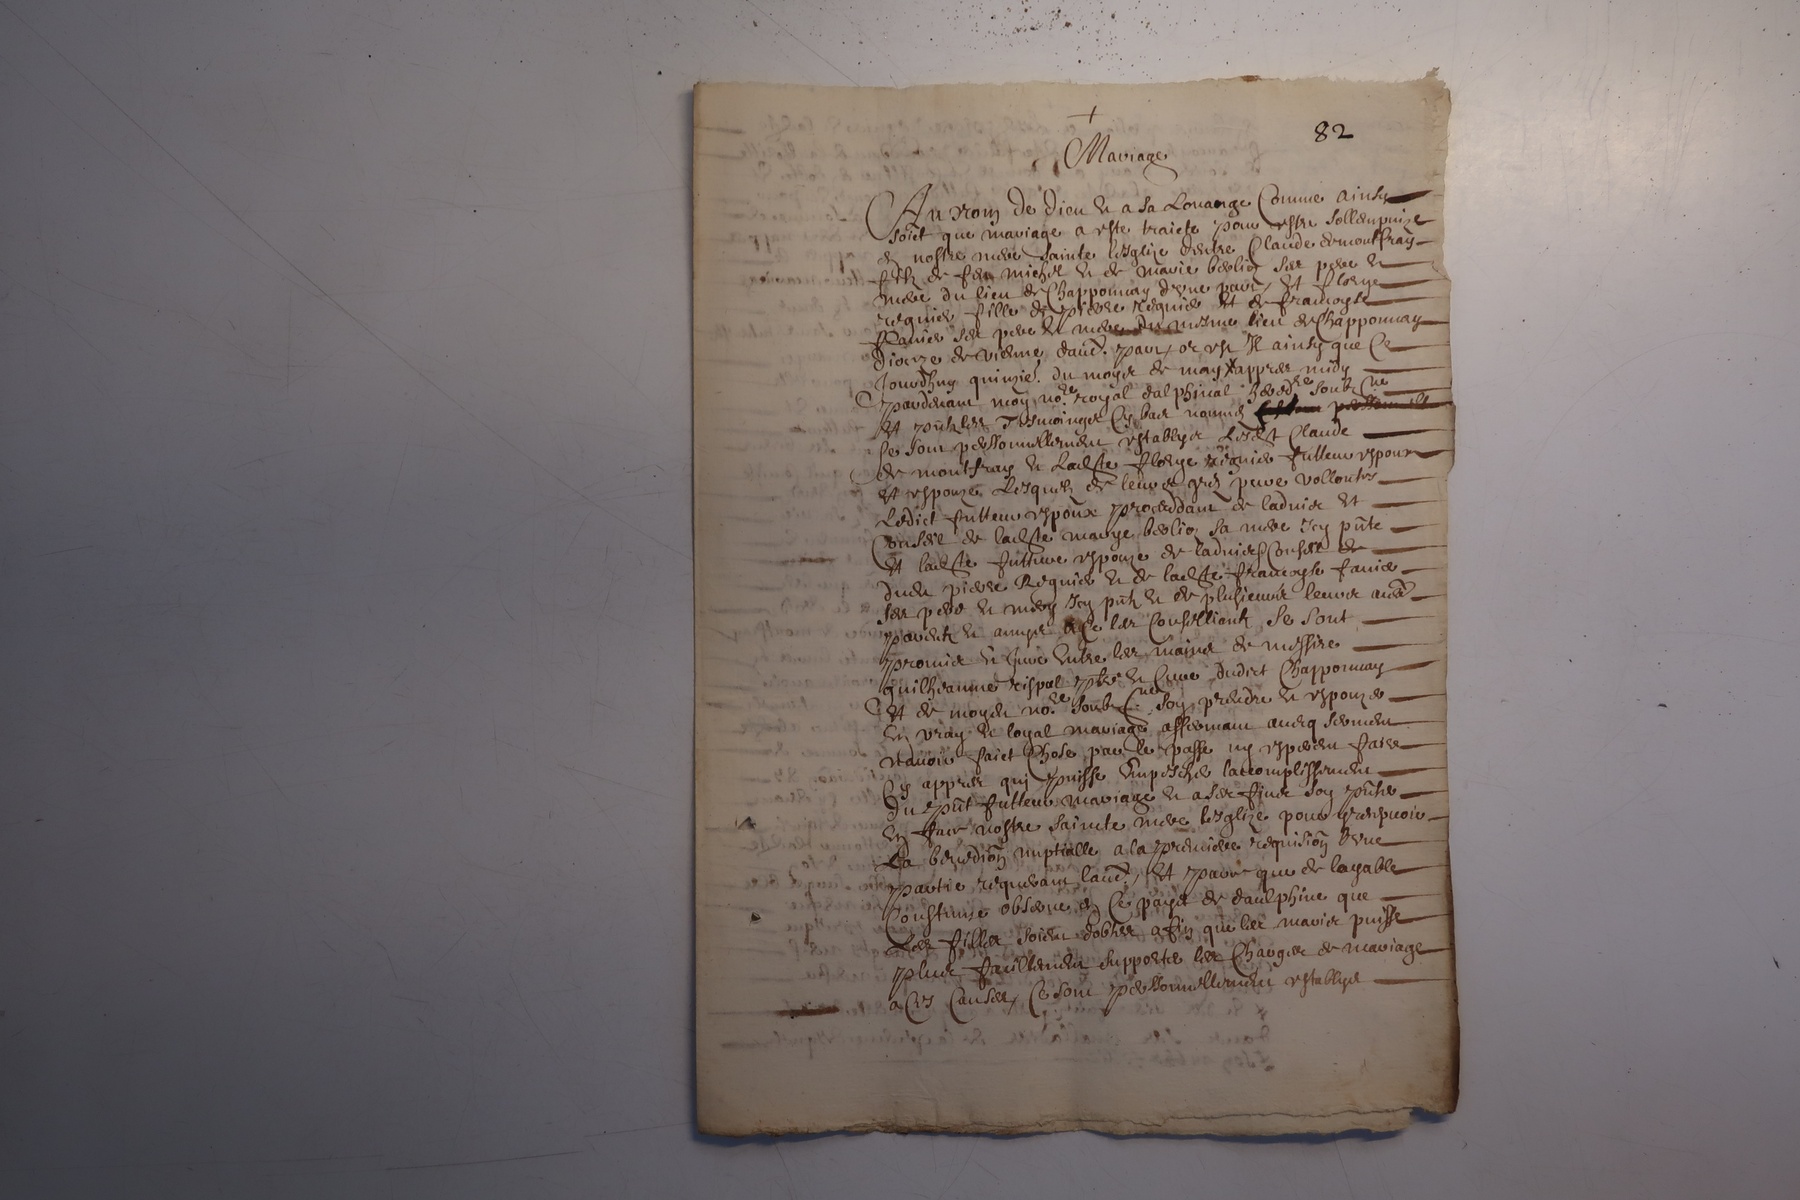 82
Mariage
Au nom de dieu et a sa Louange Comme ainsy
soict que mariage a este traicte pour estre sollempnize
en nostre mere saincte Esglize entre Claude demontfray
filz de feu michel et de marie berlio ses pere et
mere du lieu de Chapponnay d'une part, et florye
reignier fille de pierre reignier et de francoyse
ses pere et mere du mesme lieu de Chapponnay
dioceze de vienne daud. part, or est Il ainsy que Ce
Jourdhuy quinzie. du moys de may appres midy
pardevant moy no.re royal dalphinal soub.ne
et pntz les Tesmoings Cy bas nommes
se sont personnellement establys Ledict Claude
de montfray et Ladcte florye reignier futteur espoux
et espouze Lesquelz de leurs grez pure vollontes
Ledict futteur espoux proceddant de ladvis et
Conseil de ladcte marye berlio sa mere Icy pnte
et ladcte futture espouze de ladvis Conseil de
dudt pierre Reignier et de ladcte francoyse
ses pere et mere Icy pntz et de plusieurs leurs au.
parentz et amys a Ce les Conseillantz, se sont
promis et Jure Entre les mains de messire
guilheaume rispal pbre et Cure dudict Chapponnay
et de moydt no.re soub.ne soy prendre et espouzer
en vray et loyal mariage affermant avecq serment
navoir faict Chose par le passe ny esperer faire
Cy appres qui puisse Empescher laccomplissement
du pnt futteur mariage et a ses fins soy pnter
en face nostre saincte mere Esglize pour y recepvoir
La benedion nuptialle a la premiere requision Lune
partie requerant laud., et parce que de layable
Coustume observe en Ce pays de daulphine que
Les filles soient dobtees affin que les maris puisse
plus facillement supporter les Charges de mariage
a Ces Causes, Ce sont personnellement establys